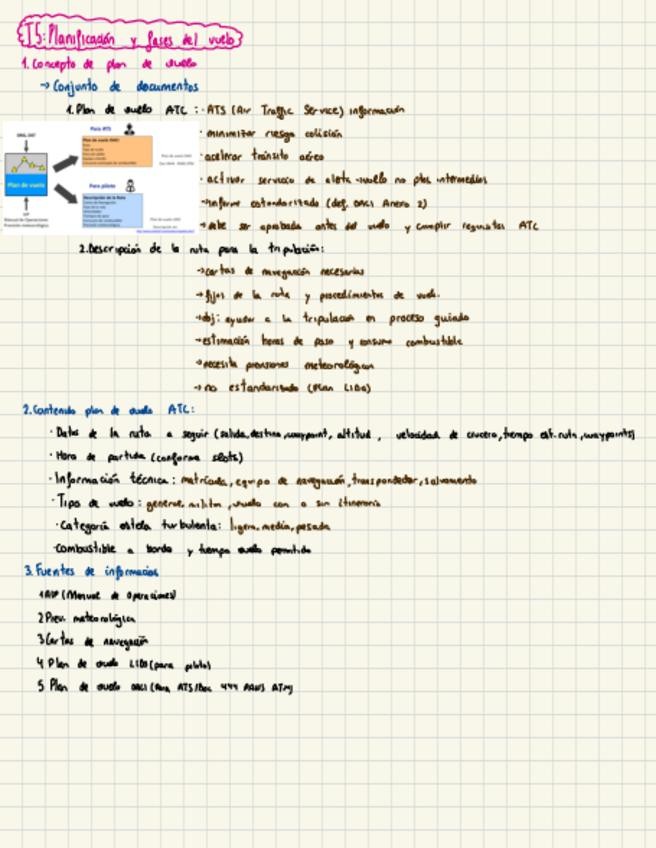 T5: Planificación y fases del vuelo
1. Concepto de plan de vuelo
→ Conjunto de documentos
1. Plan de vuelo ATC : · ATS (Air Traffic Service) información
· minimizar riesgo colisión
· acelerar tránsito aéreo
· activar servicio de alerta → vuelo no ptos intermedios
→ informe estandarizado (def. OACI Anexo 2)
→ debe ser aprobada antes del vuelo y cumplir requisitos ATC
Para ATS
Plan de vuelo OACI
Plan de vuelo
Para piloto
Descripción de la Ruta
Manual de Operaciones
Previsión meteorológica
2. Descripción de la ruta para la tripulación:
→ cartas de navegación necesarias
→ fijos de la ruta y procedimientos de vuelo.
→ obj: ayudar a la tripulación en proceso guiado
→ estimación horas de paso y consumo combustible
→ necesita previsiones meteorológicas
→ no estandarizado (Plan LIDO)
2. Contenido plan de vuelo ATC:
· Datos de la ruta a seguir (salida, destino, waypoint, altitud , velocidad de crucero, tiempo est. ruta, waypoints)
· Hora de partida (conforme slots)
· Información técnica: matrícula, equipo de navegación, transpondedor, salvamento
· Tipo de vuelo: general, militar, vuelo con o sin itinerario
· Categoría estela turbulenta: ligera, media, pesada
· Combustible a bordo y tiempo vuelo permitido
3. Fuentes de información
1 AIP (Manual de Operaciones)
2 Prev. meteorológica
3 Cartas de navegación
4 Plan de vuelo LIDO (para piloto)
5 Plan de vuelo OACI (Para ATS/Doc 444 PANS ATM)